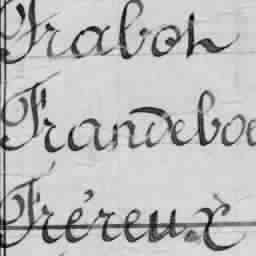 Frabon
Frandeboe
Fréreux